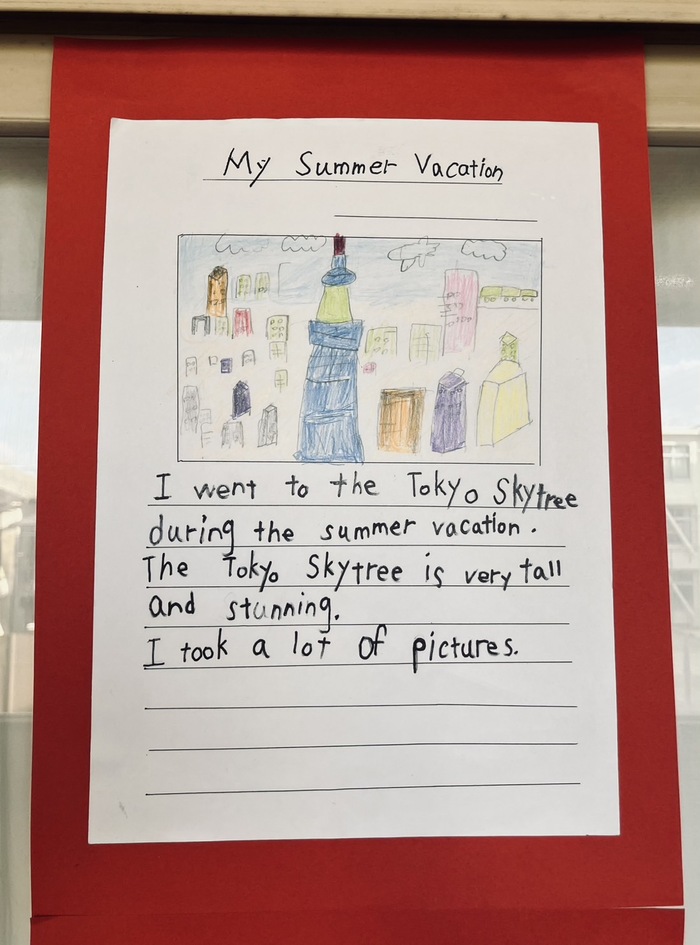 My Summer Vacation
I went to the Tokyo Skytree
during the summer vacation.
The Tokyo Skytree is very tall
and stunning.
I took a lot of pictures.